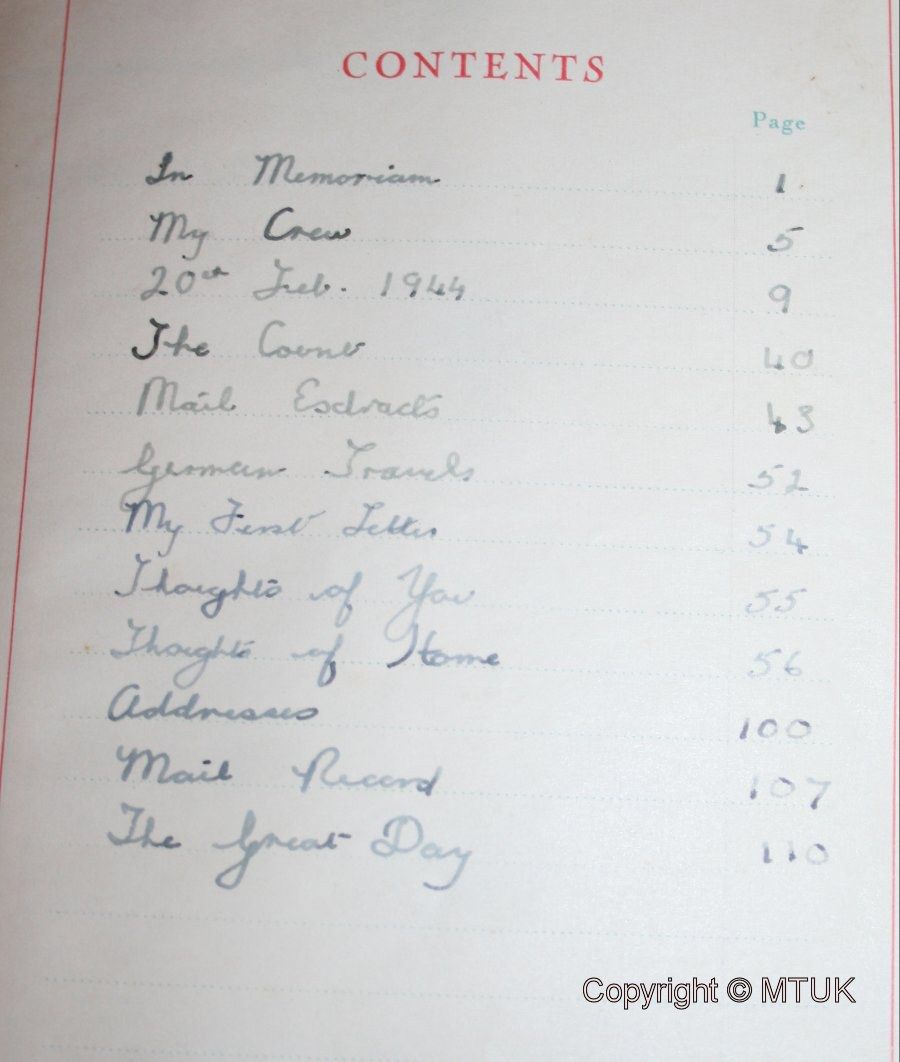 CONTENTS
Page
In Memoriam 1
My Crew 5
20th Feb. 1944 9
The 40
Mail Extracts 43
German Travels 52
My First Letter 54
Thoughts of You 55
Thoughts of Home 56
Addresses 100
Mail Record 107
The Great Day 110
Copyright © MTUK